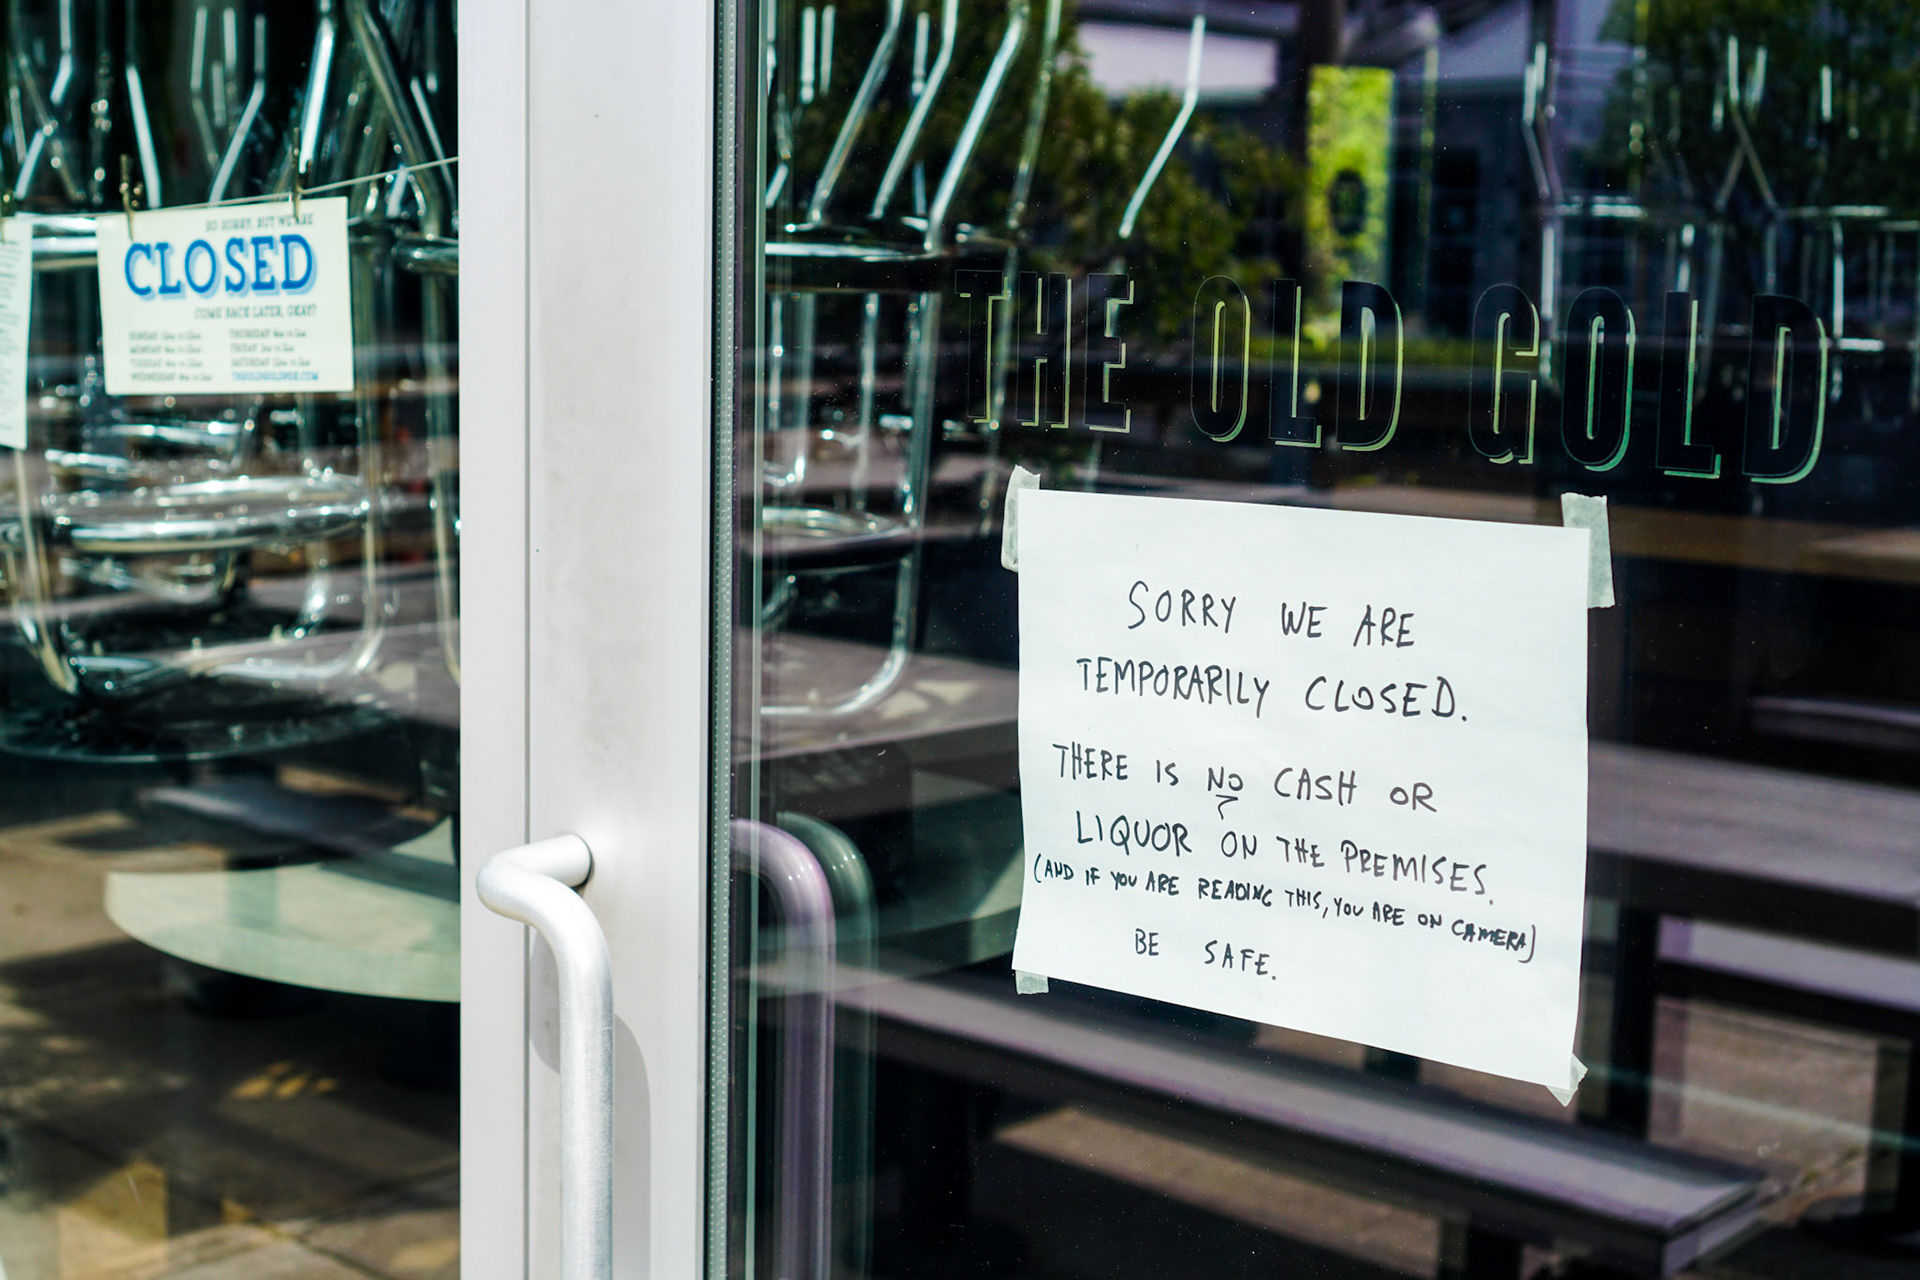 SO SORRY, BUT WE ARE
CLOSED
COME BACK LATER, OKAY?
SUNDAY
THURSDAY
MONDAY
FRIDAY
TUESDAY
SATURDAY
WEDNESDAY
THEOLDGOLDPDX.COM
THE OLD GOLD
SORRY WE ARE
TEMPORARILY CLOSED.
THERE IS NO CASH OR
LIQUOR ON THE PREMISES.
(AND IF YOU ARE READING THIS, YOU ARE ON CAMERA)
BE SAFE.